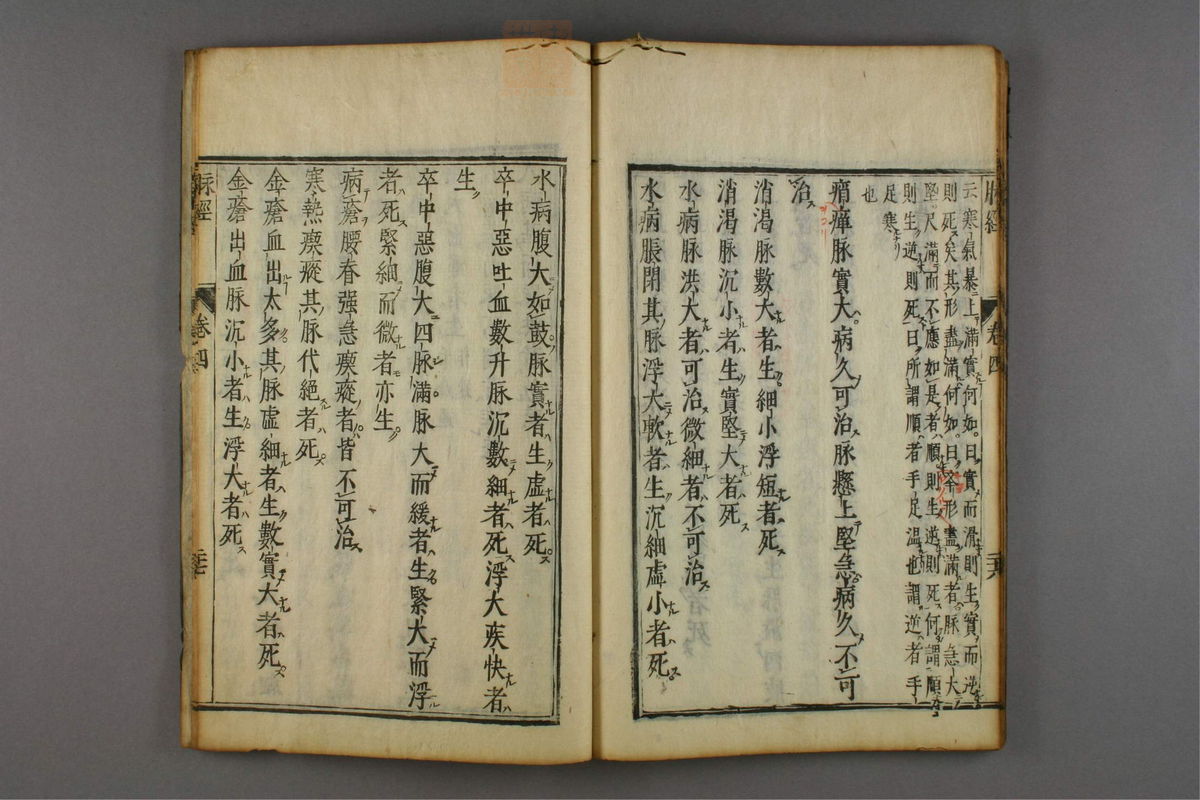 脉經
卷四
二十六
云寒氣暴上滿實何如曰實而滑則生實而逆
則死矣其形盡滿何如曰舉形盡滿者脉急大
堅尺滿而不應如是者順則生逆則死何謂順
則生逆則死曰所謂順者手足温也謂逆者手
足寒
也
痟癉脉實大病久可治脉懸上堅急病久不可
治
消渴脉數大者生細小浮短者死
消渴脉沉小者生實堅大者死
水病脉洪大者可治微細者不可治
水病脹閉其脉浮大軟者生沉細虛小者死
水病腹大如鼓脉實者生虛者死
卒中惡吐血數升脉沉數細者死浮大疾快者
生
卒中惡腹大四脉滿脉大而緩者生緊大而浮
者死緊細而微者亦生
病瘡腰脊强急瘈瘲者皆不可治
寒熱瘈瘲其脉代絶者死
金瘡血出太多其脉虛細者生數實大者死
金瘡出血脉沉小者生浮大者死
脉經
卷四